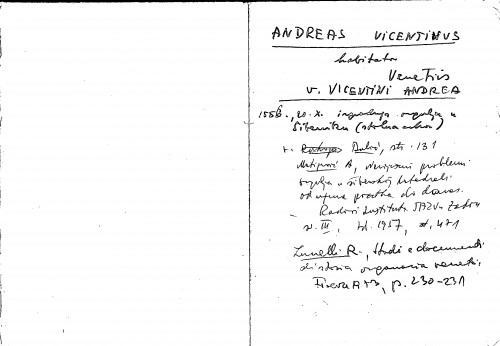 ANDREAS VICENTINUS
habitator
Venetiis
v. VICENTINI ANDREA
155 ., 20. X. izgradnja orgulja u
Šibeniku (stolna crkva)
v. str. 131
Matijević A, problem
orgulja u šibenskoj katedrali
od njena početka do danas.
Radovi Instituta JAZU u Zadru
sv. III, 1957, st. 471
Lunelli R., Studi e documenti
di storia organaria veneta,
Firenze 1973, p. 230-231